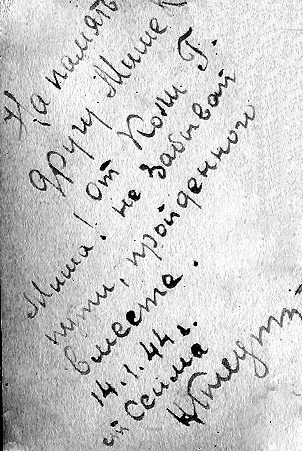 На память
другу Мише К
от Коли Г.
Миша! не забывай
пути, пройденного
вместе.
14.1.44 г.
ст Осима